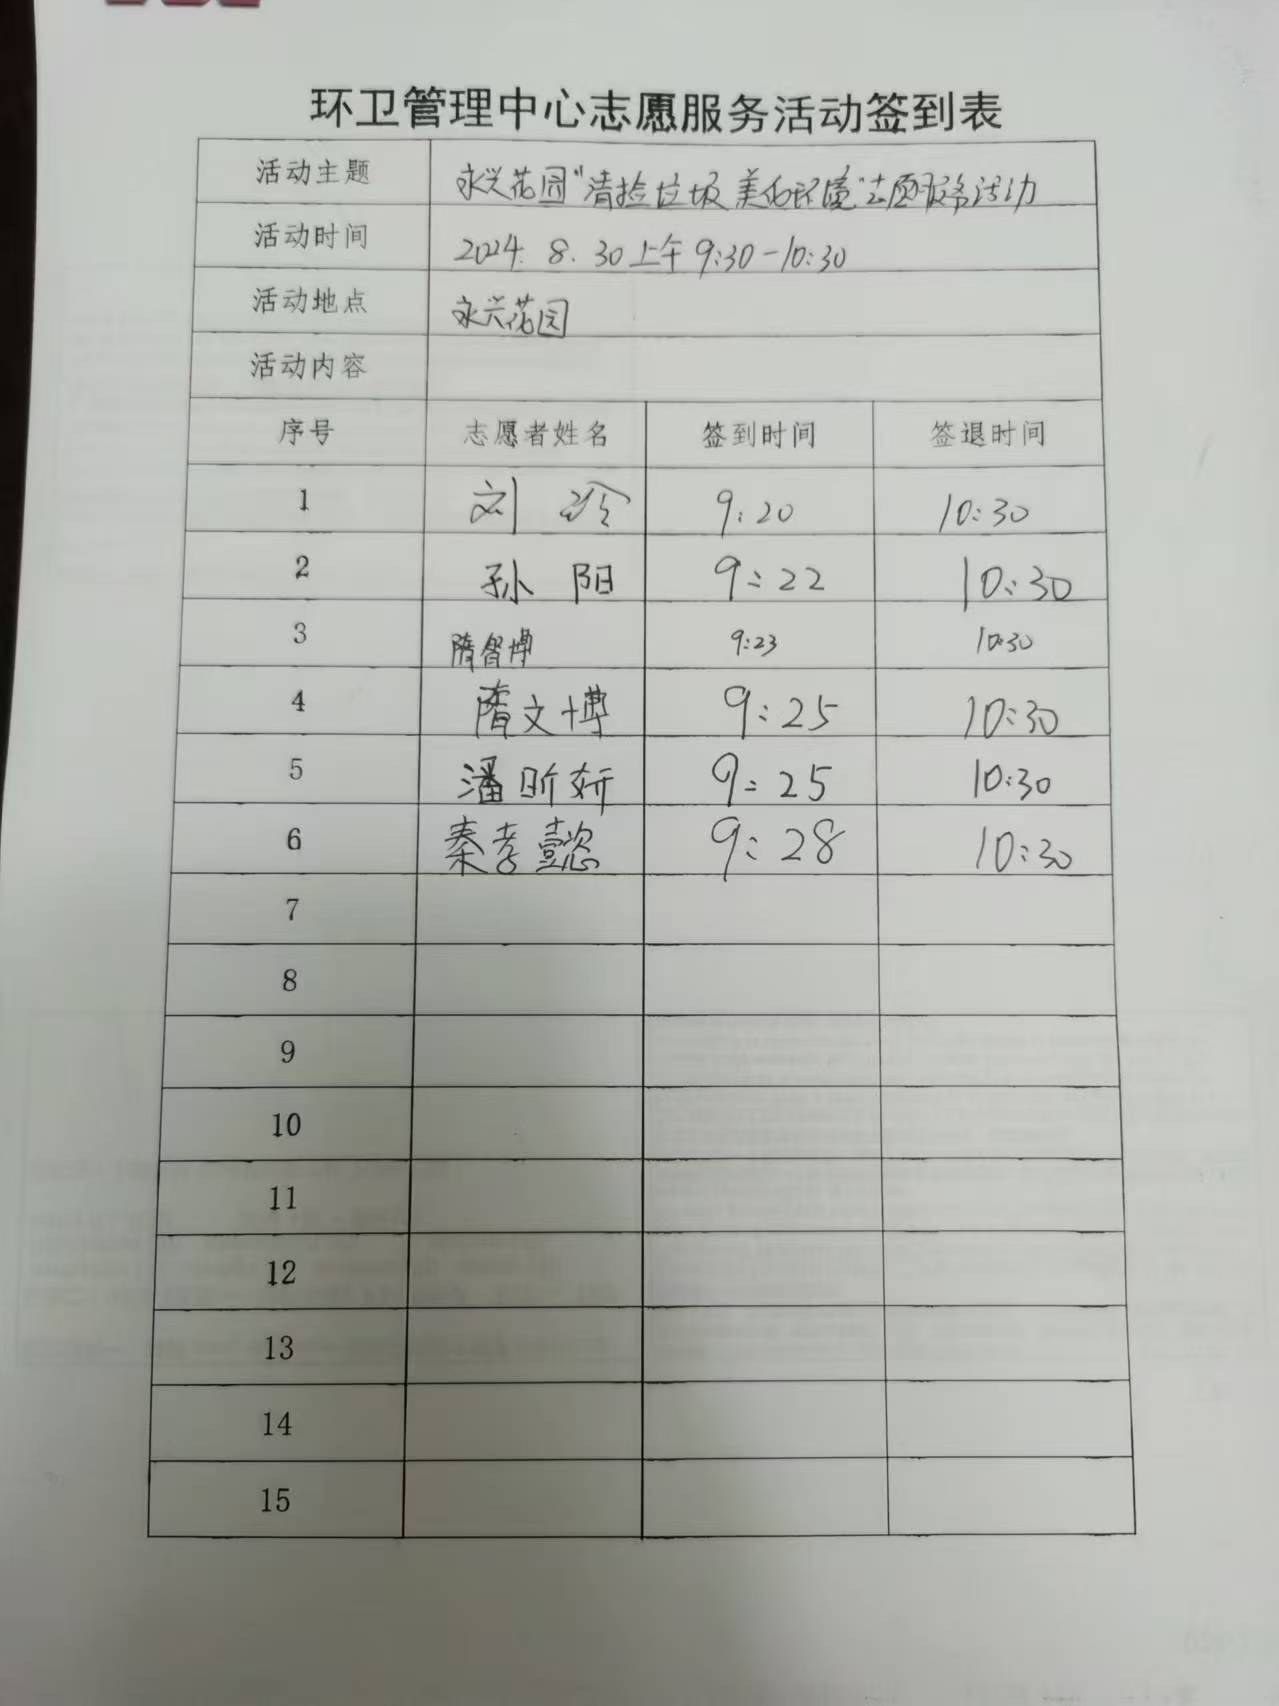 环卫管理中心志愿服务活动签到表
活动主题 永兴花园“清捡垃圾 美化环境”志愿服务活动
活动时间 2024. 8. 30 上午 9:30-10:30
活动地点 永兴花园
活动内容
序号 志愿者姓名 签到时间 签退时间
1 刘玲 9:20 10:30
2 孙阳 9:22 10:30
3 隋智博 9:23 10:30
4 隋文博 9:25 10:30
5 潘昕妍 9:25 10:30
6 秦孝懿 9:28 10:30
7
8
9
10
11
12
13
14
15